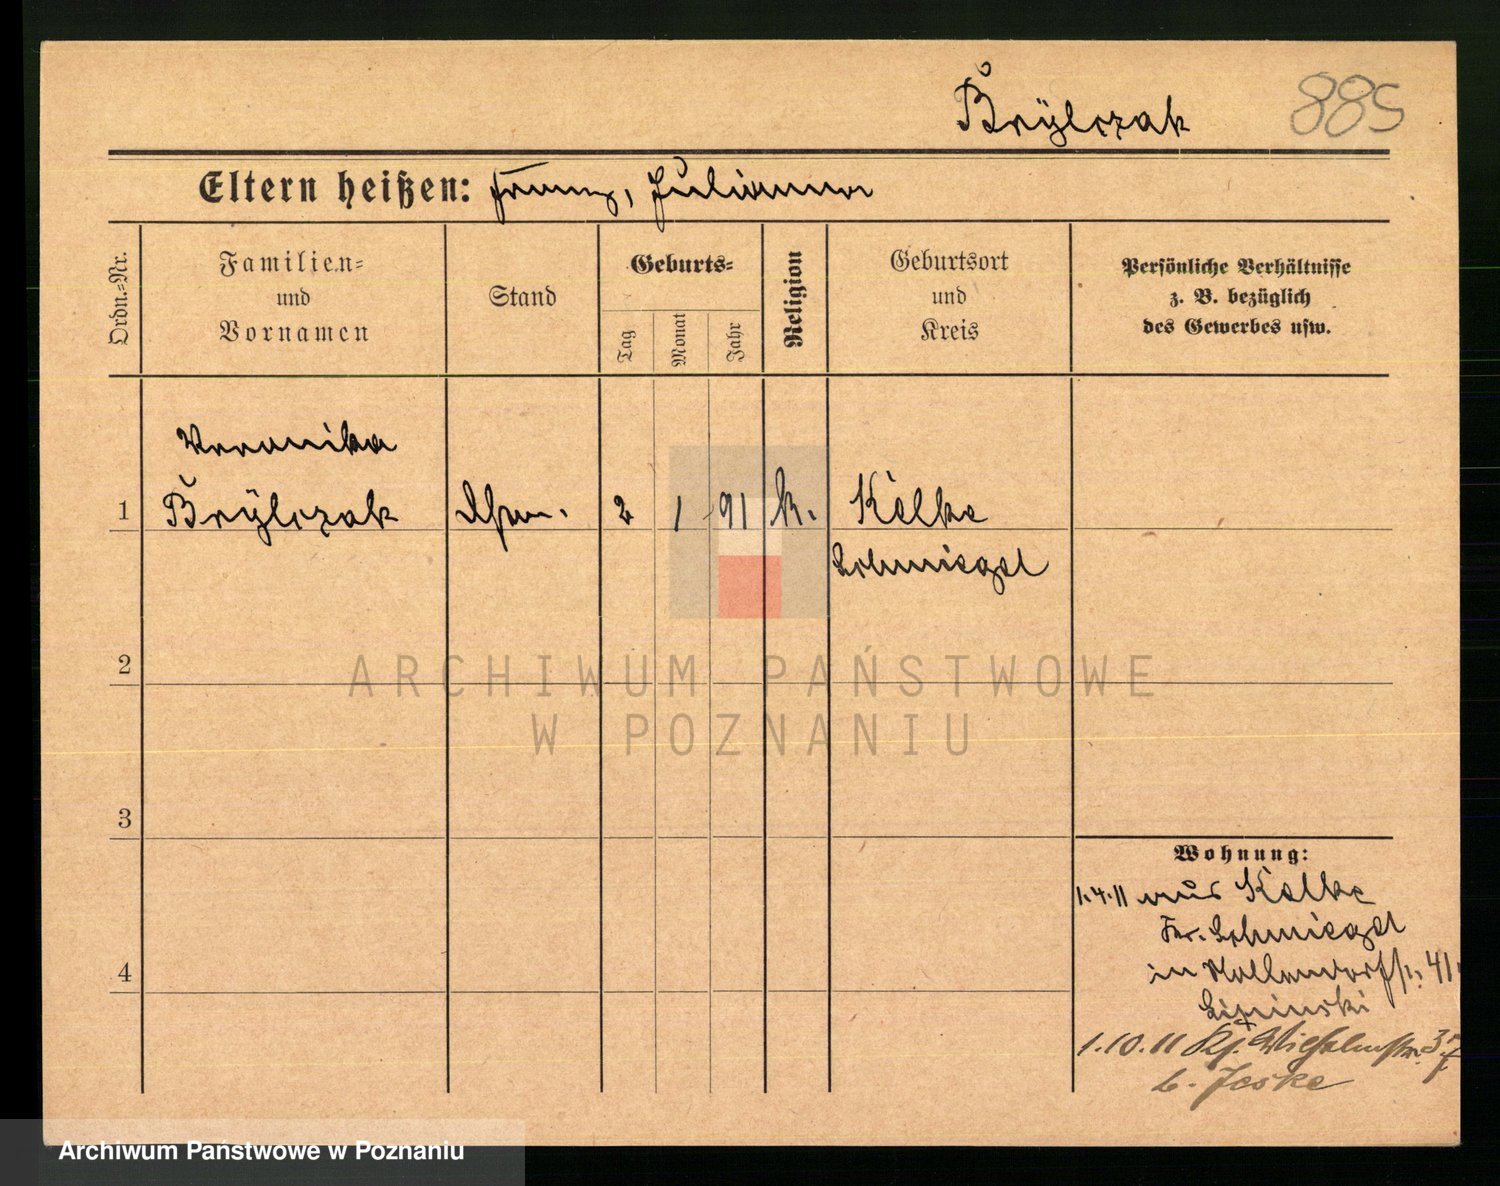 Brÿlczak 885
Eltern heißen: Franz, Julianna
Ordn.-Nr.
Familien-
und
Vornamen
Stand
Geburts-
Tag
Monat
Jahr
Religion
Geburtsort
und
Kreis
Persönliche Verhältnisse
z. B. bezüglich
des Gewerbes usw.
Veronika
1 Brÿlczak 2 1 91 k. Kelke
Schmiegel
2
ARCHIWUM PAŃSTWOWE
W POZNANIU
3
Wohnung:
1.4.11 aus Kelke
Schmiegel
4 in Hollendorfstr. 41
Lipinski
1.10.11 Wilhelmstr.
b. Jeske
Archiwum Państwowe w Poznaniu